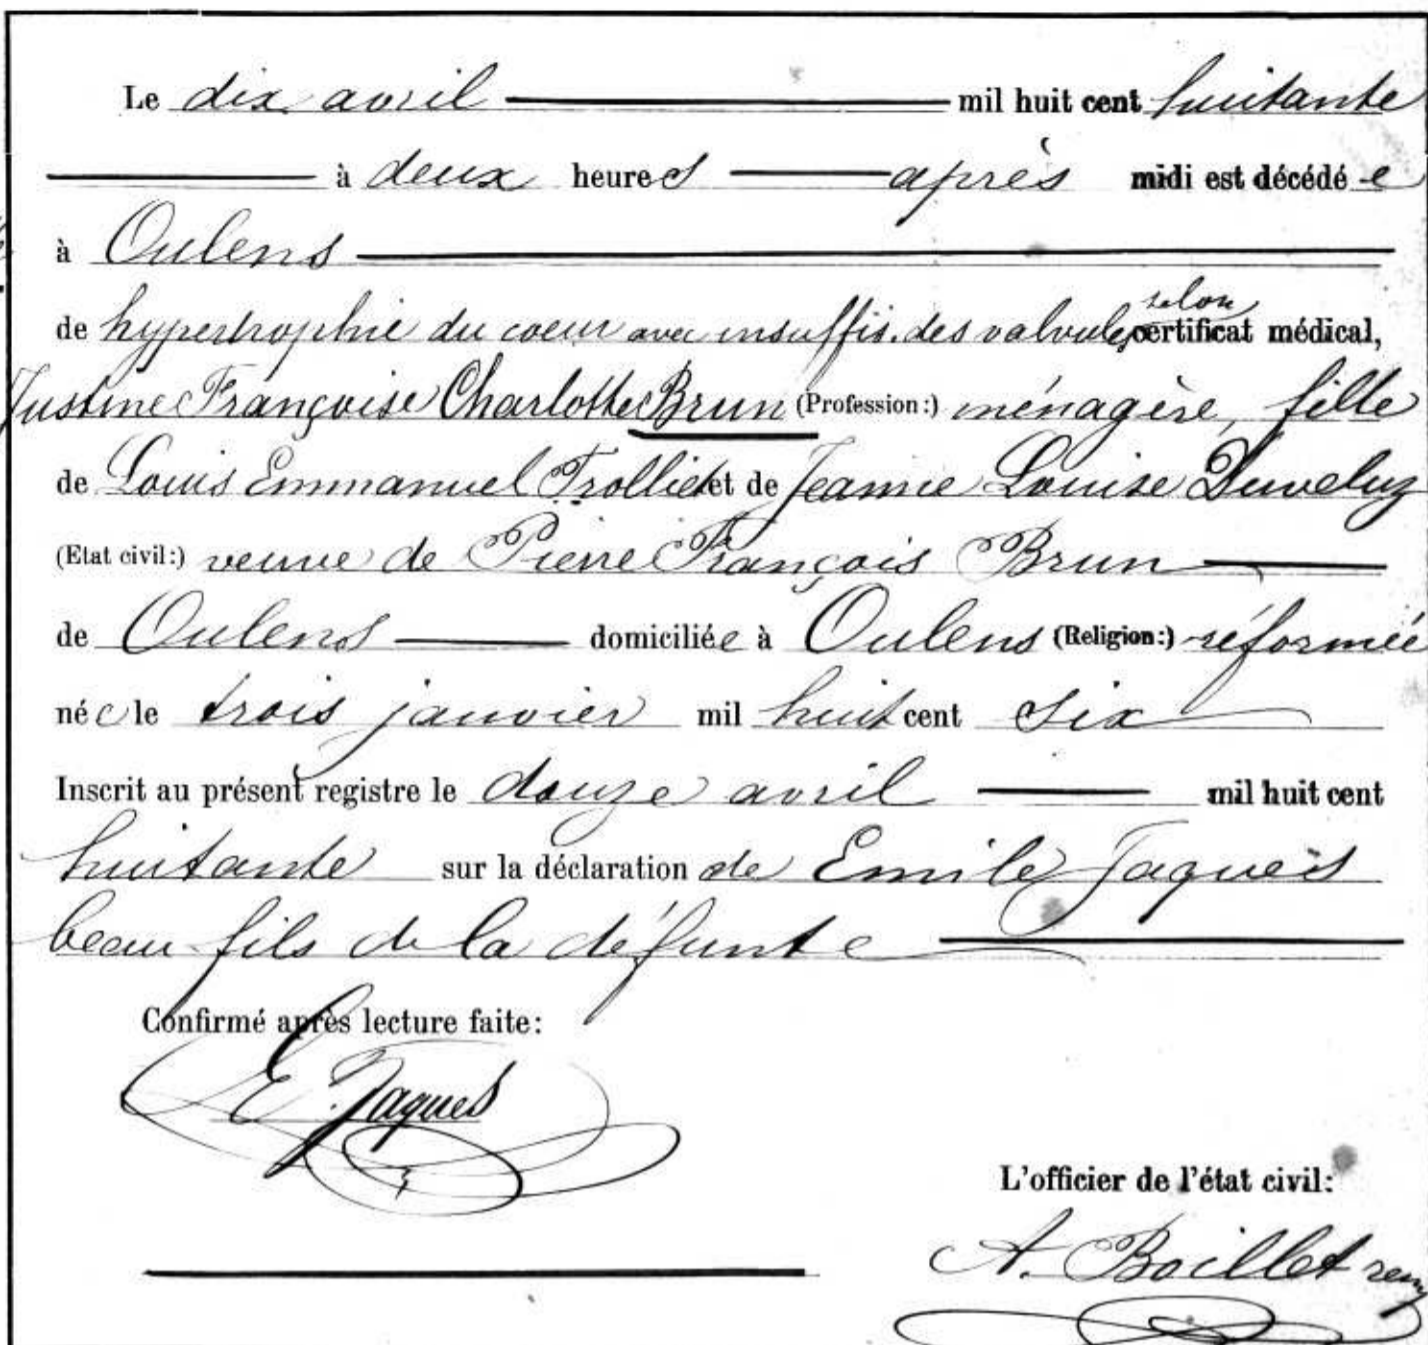 Le dix avril mil huit cent huitante
à deux heures après midi est décédée
à Oulens
selon
de hypertrophie du coeur avec insuffis. des valvules, certificat médical,
Justine Françoise Charlotte Brun (Profession:) ménagère, fille
de Louis Emmanuel Trolliet et de Jeanne Louise Duveluz
(Etat civil:) veuve de Pierre François Brun
de Oulens domiciliée à Oulens (Religion:) réformée
née le trois janvier mil huit cent six
Inscrit au présent registre le douze avril mil huit cent
huitante sur la déclaration de Emile Jaques
beau fils de la défunte
Confirmé après lecture faite:
E. Jaques
L'officier de l'état civil:
A. Boillet